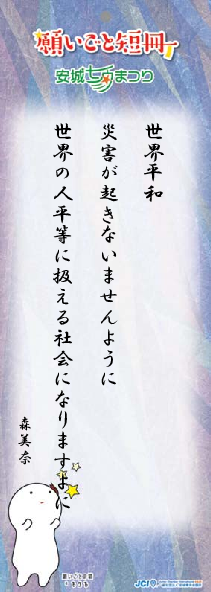 願いごと短冊
安城七夕まつり
世界平和
災害が起きないませんように
世界の人平等に扱える社会になりますように
森美奈
願いごと短冊
JCI